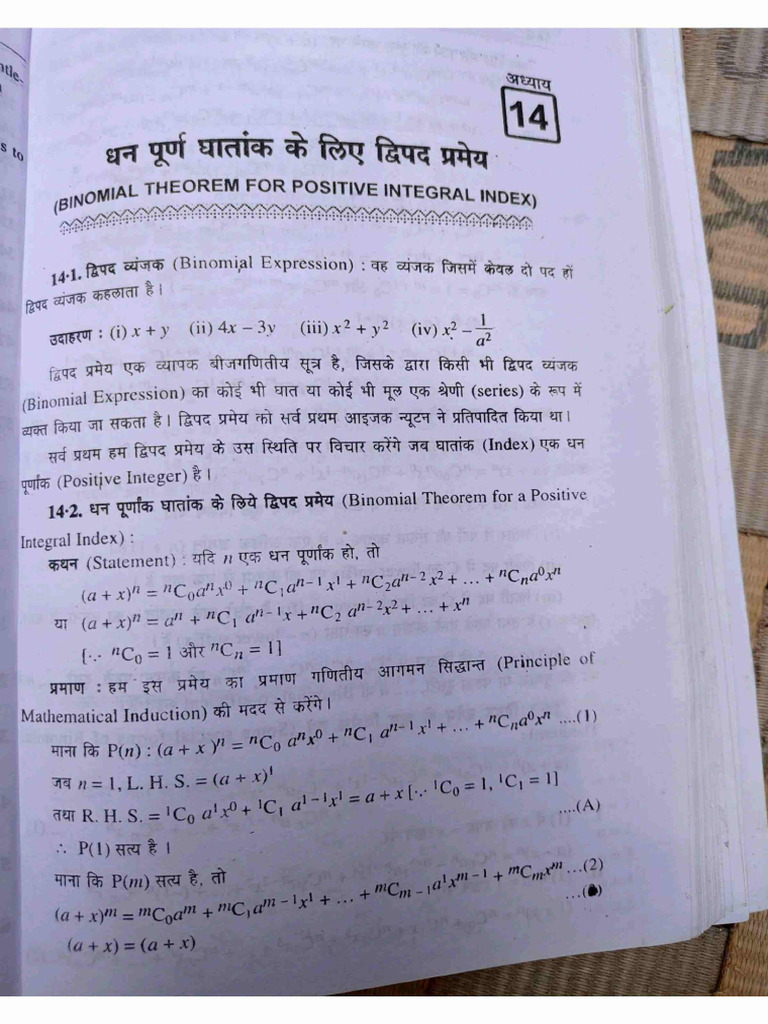 ntle-
s to
अध्याय
14
धन पूर्ण घातांक के लिए द्विपद प्रमेय
(BINOMIAL THEOREM FOR POSITIVE INTEGRAL INDEX)
14·1. द्विपद व्यंजक (Binomial Expression) : वह व्यंजक जिसमें केवल दो पद हों
द्विपद व्यंजक कहलाता है।
उदाहरण : (i) x + y (ii) 4x – 3y (iii) x² + y² (iv) x² – 1/a²
द्विपद प्रमेय एक व्यापक बीजगणितीय सूत्र है, जिसके द्वारा किसी भी द्विपद व्यंजक
(Binomial Expression) का कोई भी घात या कोई भी मूल एक श्रेणी (series) के रूप में
व्यक्त किया जा सकता है। द्विपद प्रमेय को सर्व प्रथम आइजक न्यूटन ने प्रतिपादित किया था।
सर्व प्रथम हम द्विपद प्रमेय के उस स्थिति पर विचार करेंगे जब घातांक (Index) एक धन
पूर्णांक (Positive Integer) है।
14·2. धन पूर्णांक घातांक के लिये द्विपद प्रमेय (Binomial Theorem for a Positive
Integral Index) :
कथन (Statement) : यदि n एक धन पूर्णांक हो, तो
(a + x)ⁿ = ⁿC₀aⁿx⁰ + ⁿC₁aⁿ⁻¹x¹ + ⁿC₂aⁿ⁻²x² + ... + ⁿCₙa⁰xⁿ
या (a + x)ⁿ = aⁿ + ⁿC₁ aⁿ⁻¹x + ⁿC₂ aⁿ⁻²x² + ... + xⁿ
[∵ ⁿC₀ = 1 और ⁿCₙ = 1]
प्रमाण : हम इस प्रमेय का प्रमाण गणितीय आगमन सिद्धान्त (Principle of
Mathematical Induction) की मदद से करेंगे।
माना कि P(n) : (a + x )ⁿ = ⁿC₀ aⁿx⁰ + ⁿC₁ aⁿ⁻¹x¹ + ... + ⁿCₙa⁰xⁿ ....(1)
जब n = 1, L. H. S. = (a + x)¹
तथा R. H. S. = ¹C₀ a¹x⁰ + ¹C₁ a¹⁻¹x¹ = a + x [∵ ¹C₀ = 1, ¹C₁ = 1]
∴ P(1) सत्य है। ....(A)
माना कि P(m) सत्य है, तो
(a + x)ᵐ = ᵐC₀aᵐ + ᵐC₁aᵐ⁻¹x¹ + ... + ᵐCₘ₋₁a¹xᵐ⁻¹ + ᵐCₘxᵐ ...(2)
(a + x) = (a + x)